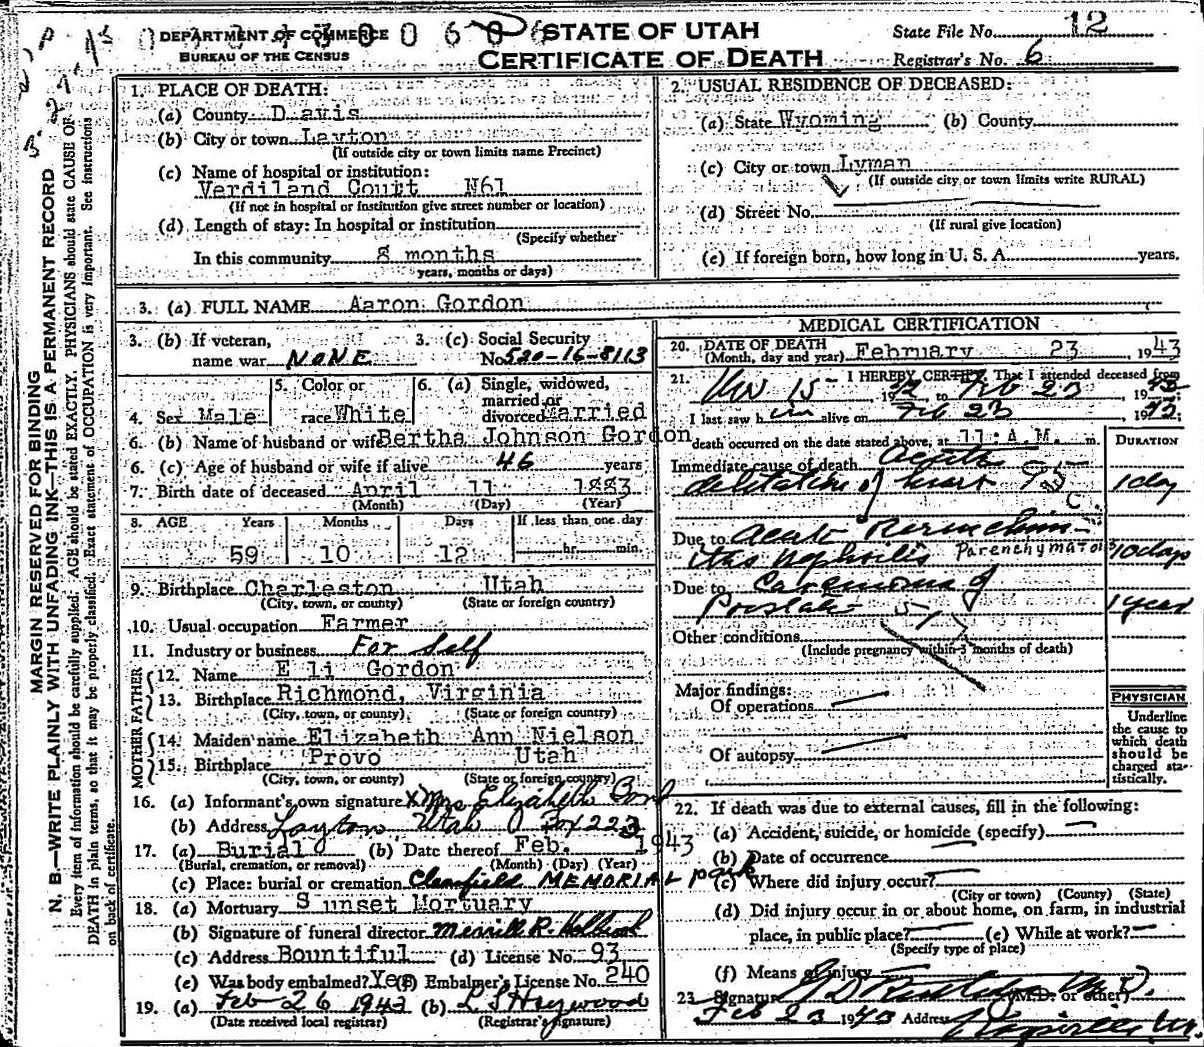 DEPARTMENT OF COMMERCE
BUREAU OF THE CENSUS
STATE OF UTAH
CERTIFICATE OF DEATH
State File No. 12
Registrar's No. 6
MARGIN RESERVED FOR BINDING
N. B.—WRITE PLAINLY WITH UNFADING INK—THIS IS A PERMANENT RECORD
Every item of information should be carefully supplied. AGE should be stated EXACTLY. PHYSICIANS should state CAUSE OF
DEATH in plain terms, so that it may be properly classified. Exact statement of OCCUPATION is very important. See instructions
on back of certificate.
1. PLACE OF DEATH:
(a) County Davis
(b) City or town Layton
(If outside city or town limits name Precinct)
(c) Name of hospital or institution:
Verdiland Court N61
(If not in hospital or institution give street number or location)
(d) Length of stay: In hospital or institution
(Specify whether
In this community 8 months
years, months or days)
2. USUAL RESIDENCE OF DECEASED:
(a) State Wyoming (b) County
(c) City or town Lyman
(If outside city or town limits write RURAL)
(d) Street No.
(If rural give location)
(e) If foreign born, how long in U. S. A. years.
3. (a) FULL NAME Aaron Gordon
3. (b) If veteran, name war NONE
3. (c) Social Security No. 520-16-8113
4. Sex Male
5. Color or race White
6. (a) Single, widowed, married or divorced Married
6. (b) Name of husband or wife Bertha Johnson Gordon
6. (c) Age of husband or wife if alive 46 years
7. Birth date of deceased April 11 1883
(Month) (Day) (Year)
8. AGE Years Months Days If less than one day
59 10 12 hr. min.
9. Birthplace Charleston Utah
(City, town, or county) (State or foreign country)
10. Usual occupation Farmer
11. Industry or business For Self
FATHER
12. Name Eli Gordon
13. Birthplace Richmond, Virginia
(City, town, or county) (State or foreign country)
MOTHER
14. Maiden name Elizabeth Ann Nielson
15. Birthplace Provo Utah
(City, town, or county) (State or foreign country)
16. (a) Informant's own signature X Mrs Elizabeth
(b) Address Layton, Utah Box 223
17. (a) Burial (b) Date thereof Feb. 1943
(Burial, cremation, or removal) (Month) (Day) (Year)
(c) Place: burial or cremation Clearfield MEMORIAL Park
18. (a) Mortuary Sunset Mortuary
(b) Signature of funeral director Merrill R. Holbrook
(c) Address Bountiful (d) License No. 93
(e) Was body embalmed? Yes (f) Embalmer's License No. 240
19. (a) Feb 26 1943 (b) L S Heywood
(Date received local registrar) (Registrar's signature)
MEDICAL CERTIFICATION
20. DATE OF DEATH
(Month, day and year) February 23, 1943
21. I HEREBY CERTIFY, That I attended deceased from
Jan 15, 19 to Feb 23, 1943
I last saw him alive on Feb 23 1943;
death occurred on the date stated above, at 11:A.M. m.
DURATION
Immediate cause of death Acute
dilitation of heart 95 C 1 day
Due to acute
Nephritis Parenchymatous 10 days
Due to Carcinoma of
Prostate 51 1 year
Other conditions
(Include pregnancy within 3 months of death)
Major findings:
Of operations
Of autopsy
PHYSICIAN
Underline
the cause to
which death
should be
charged sta-
tistically.
22. If death was due to external causes, fill in the following:
(a) Accident, suicide, or homicide (specify)
(b) Date of occurrence
(c) Where did injury occur?
(City or town) (County) (State)
(d) Did injury occur in or about home, on farm, in industrial
place, in public place? (e) While at work?
(Specify type of place)
(f) Means of injury
23. Signature M.D. (M.D. or other)
Feb 23 1943 Address